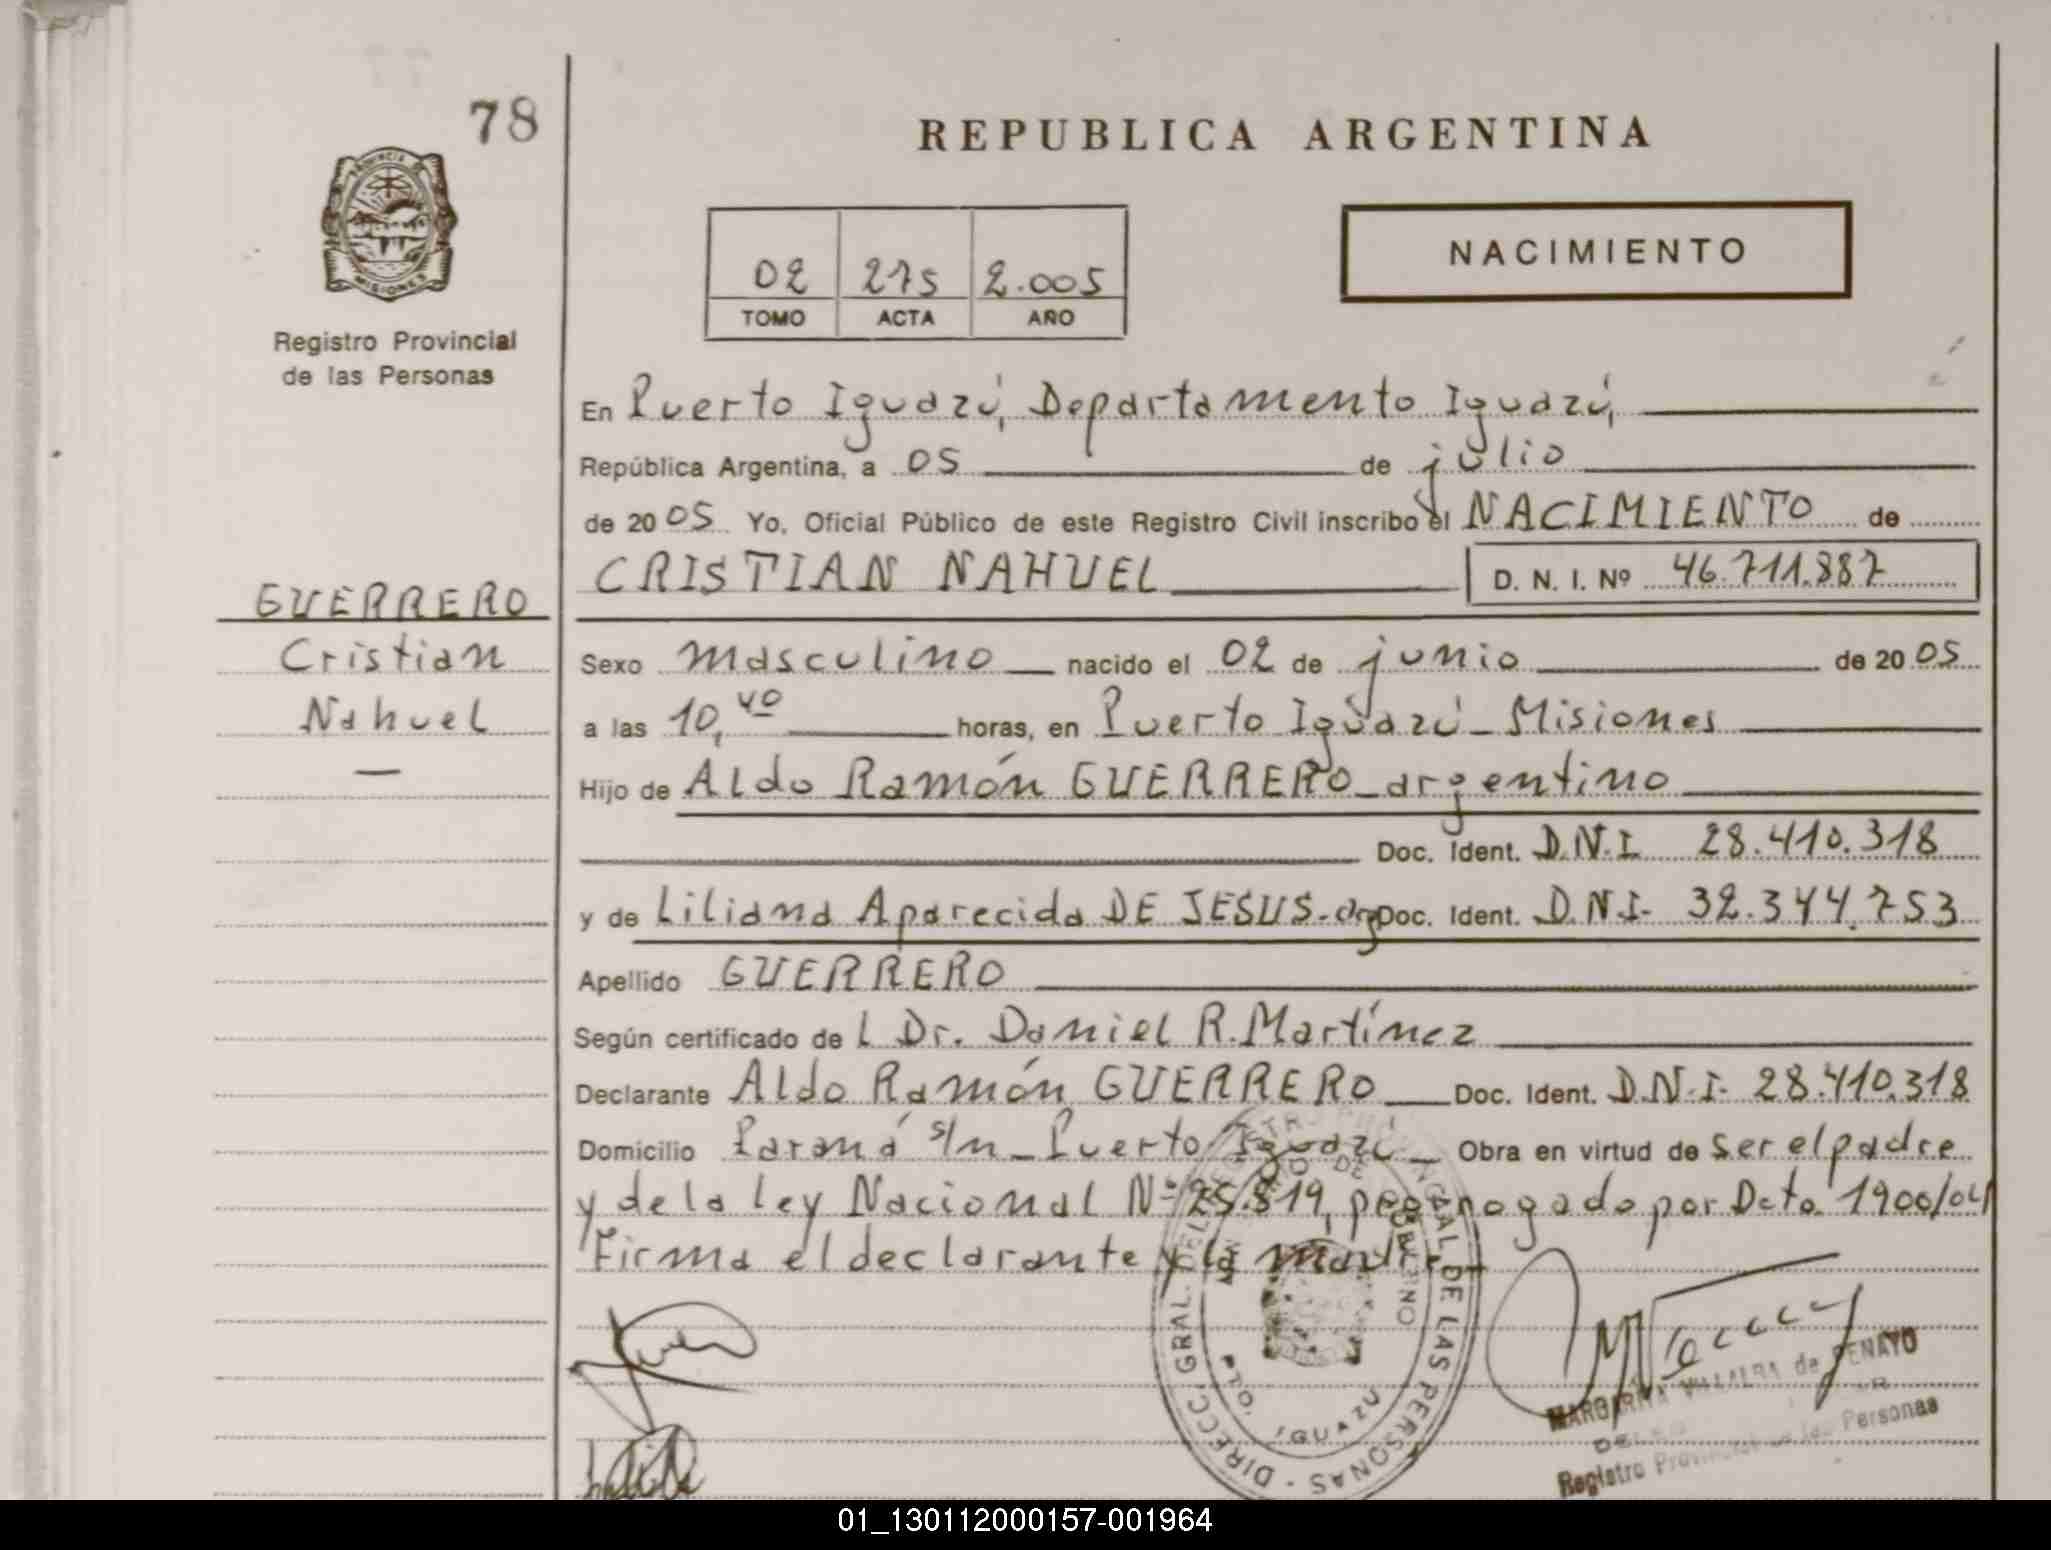 78
REPUBLICA ARGENTINA
PROVINCIA DE
MISIONES
NACIMIENTO
02 275 2.005
TOMO ACTA AÑO
Registro Provincial
de las Personas
En Puerto Iguazú, Departamento Iguazú,
República Argentina, a 05 de julio
de 2005 Yo, Oficial Público de este Registro Civil inscribo el NACIMIENTO de
CRISTIAN NAHUEL D. N. I. Nº 46.711.887
GUERRERO
Cristian
Nahuel
Sexo masculino nacido el 02 de junio de 2005
a las 10,40 horas, en Puerto Iguazú - Misiones
Hijo de Aldo Ramón GUERRERO - argentino
Doc. Ident. D.N.I. 28.410.318
y de Liliana Aparecida DE JESUS - arg Doc. Ident. D.N.I. 32.344.753
Apellido GUERRERO
Según certificado de l Dr. Daniel R. Martínez
Declarante Aldo Ramón GUERRERO Doc. Ident. D.N.I. 28.410.318
Domicilio Paraná s/n - Puerto Iguazú - Obra en virtud de ser el padre
y de la ley Nacional Nº 25.819, prorrogado por Dcto. 1900/04
Firma el declarante y la madre
DIRECC. GRAL. DEL REGISTRO PROVINCIAL DE LAS PERSONAS
IGUAZU
MARGARITA VILLALBA de PENAYO
Registro Provincial de las Personas
01_130112000157-001964